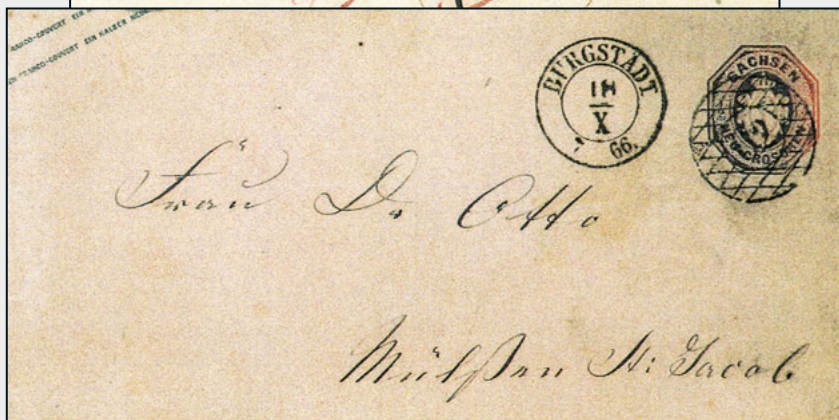 FRANCO-COUVERT EIN HALBER NEUGR
FRANCO-COUVERT EIN
BURGSTÄDT
18
X
7 66.
SACHSEN
NEU-GROSCHEN
Frau Dr Otto
Mülßen St: Jacob